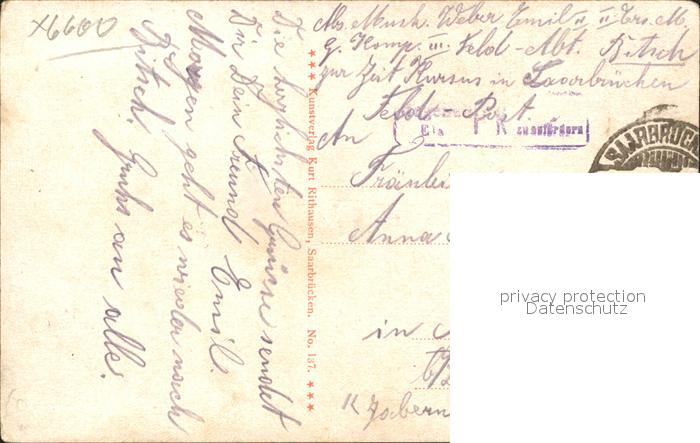 X6600
Abs. Musk. Weber Emil II Ers. M.
G. Komp. III. Feld-Abt. Bitsch
zur Zeit Kursus in Saarbrücken
Feld-Post.
An
Fräulei
Anna
in
Zabern
Die herzlichsten Grüsse sendet
Dir Dein Freund Emil.
Morgen geht es wieder nach
Bitsch. Gruss an alle.
*** Kunstverlag Kurt Rithausen, Saarbrücken. No. 137. ***
zu
SAARBRÜC
privacy protection
Datenschutz